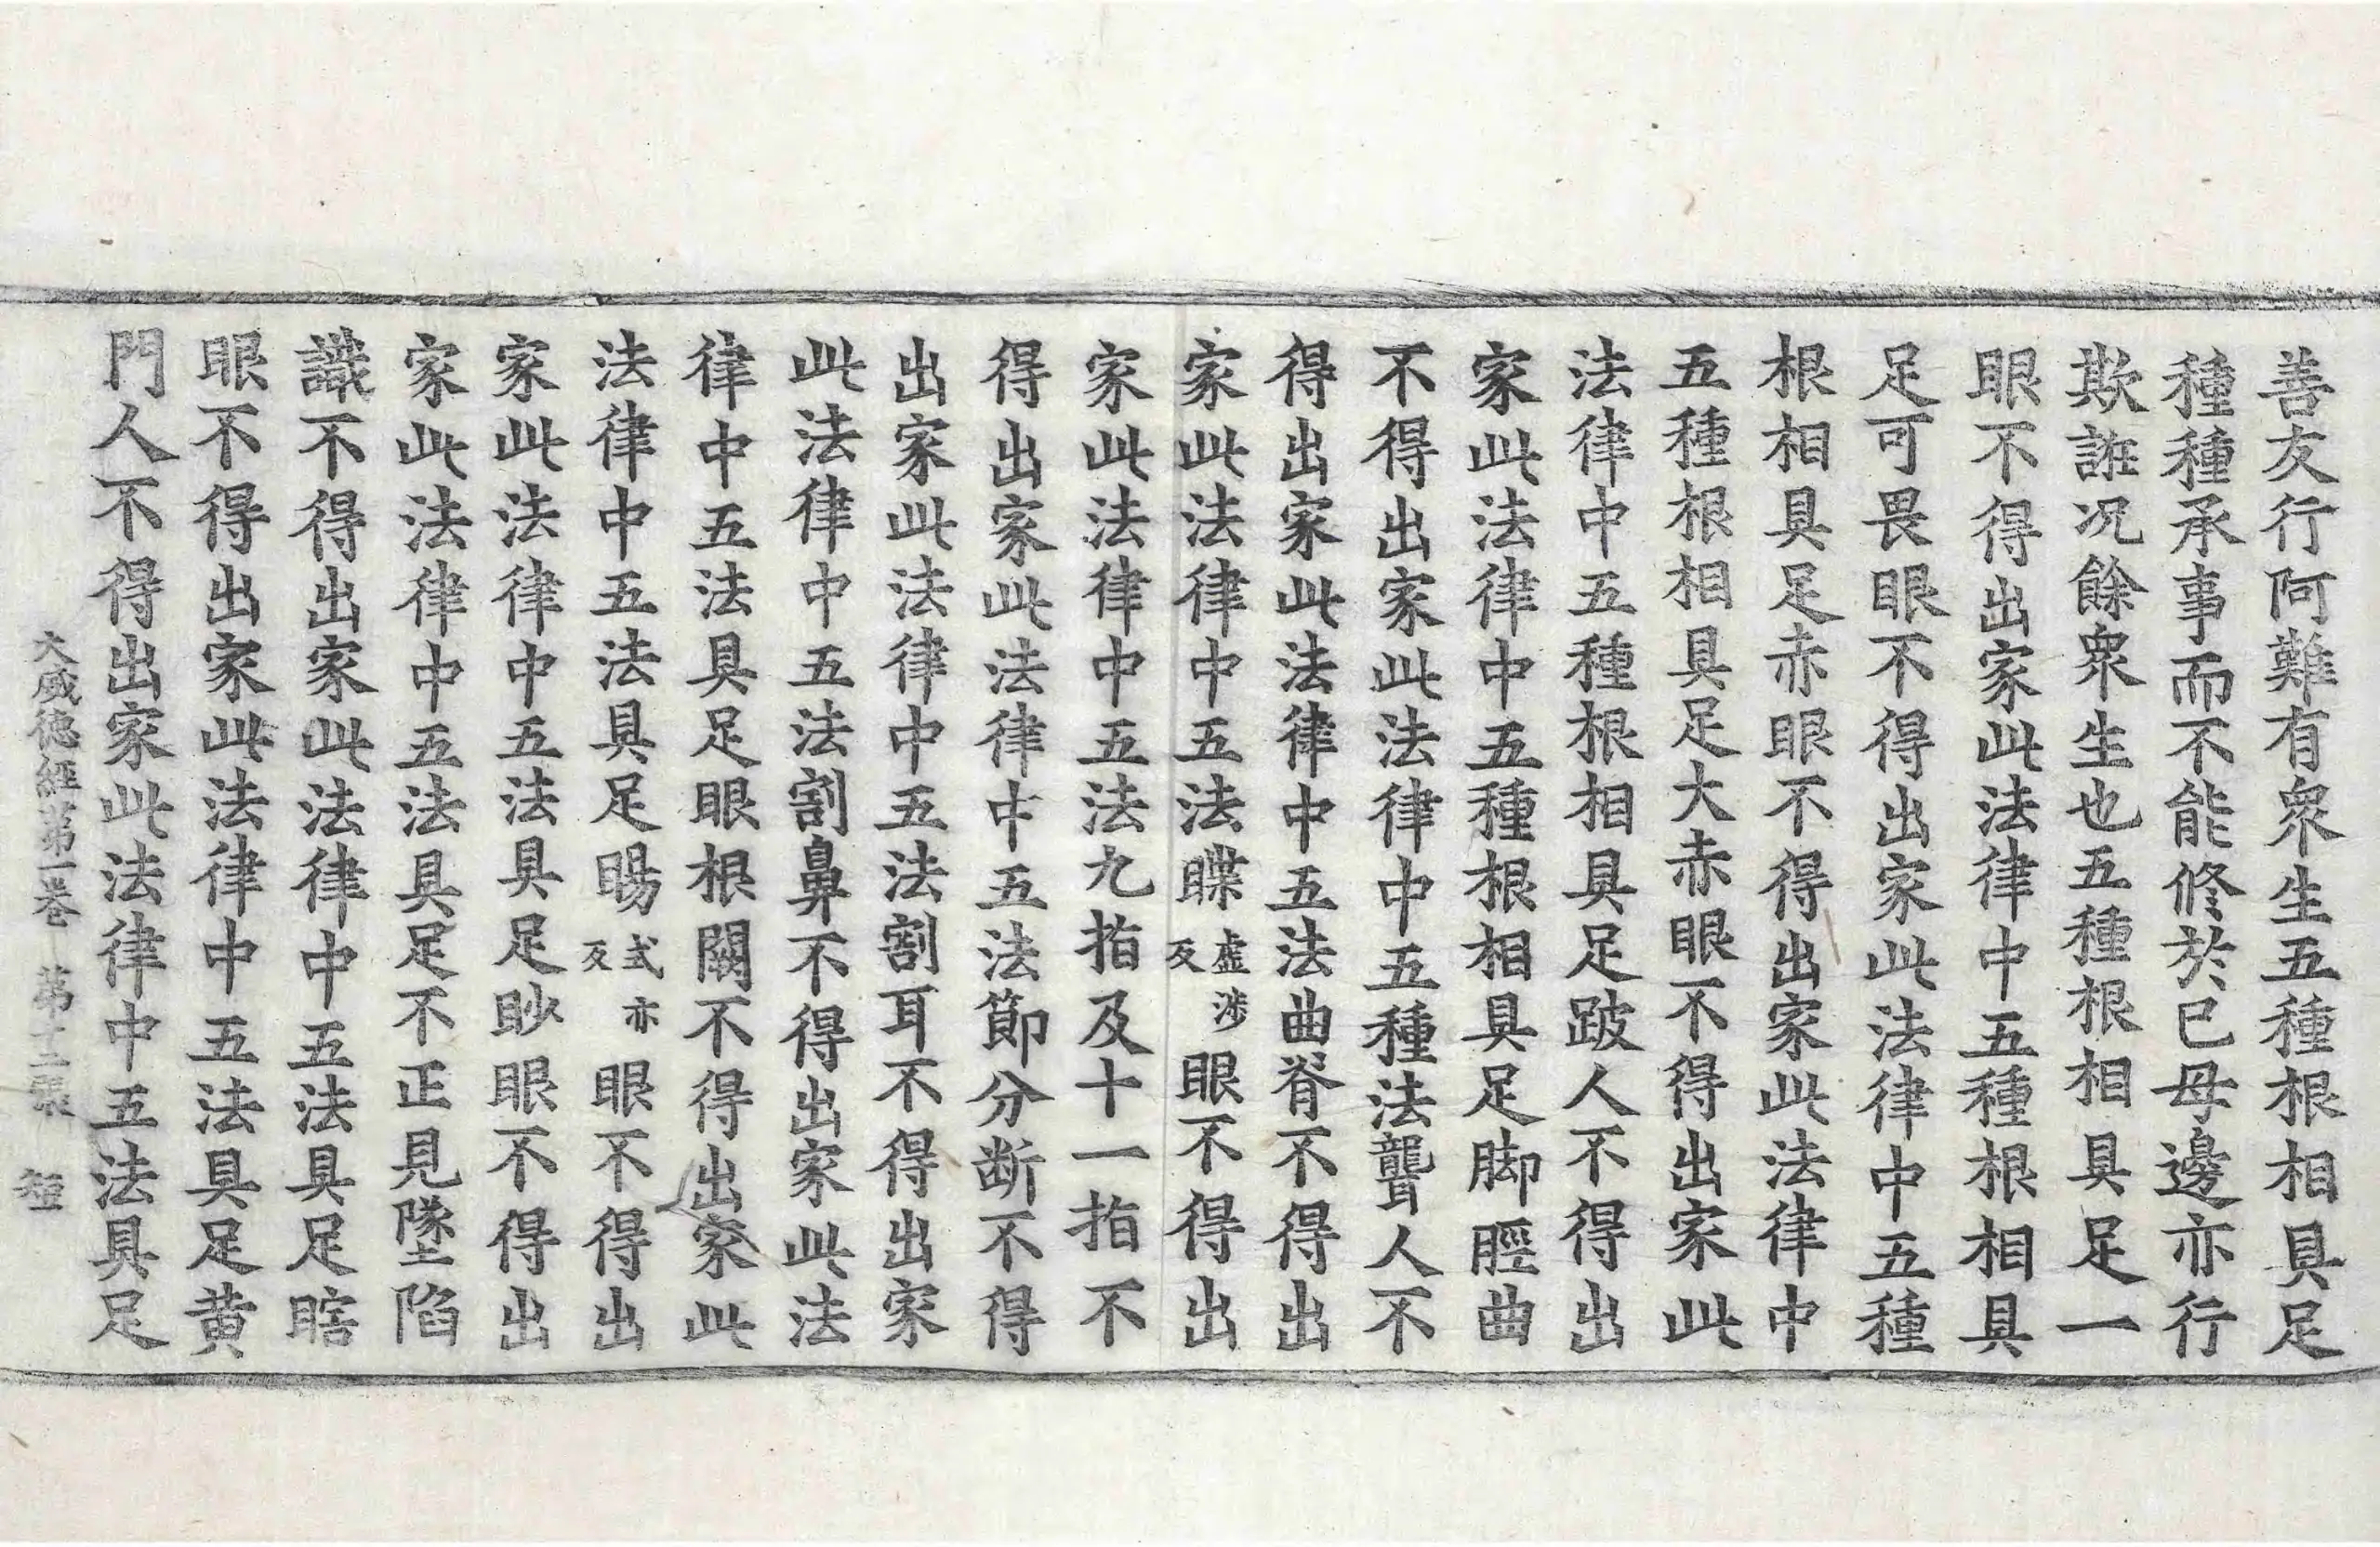 善友行阿難有衆生五種根相具足
種種承事而不能修於已母邊亦行
欺誑況餘衆生也五種根相具足一
眼不得出家此法律中五種根相具
足可畏眼不得出家此法律中五種
根相具足赤眼不得出家此法律中
五種根相具足大赤眼不得出家此
法律中五種根相具足跛人不得出
家此法律中五種根相具足脚脛曲
不得出家此法律中五種法聾人不
得出家此法律中五法曲脊不得出
家此法律中五法䁋虛涉反眼不得出
家此法律中五法九指及十一指不
得出家此法律中五法節分断不得
出家此法律中五法割耳不得出家
此法律中五法割鼻不得出家此法
律中五法具足眼根闕不得出家此
法律中五法具足睗式亦反眼不得出
家此法律中五法具足眇眼不得出
家此法律中五法具足不正見墜陷
識不得出家此法律中五法具足瞎
眼不得出家此法律中五法具足黄
門人不得出家此法律中五法具足
大威德經第一卷 第十二張